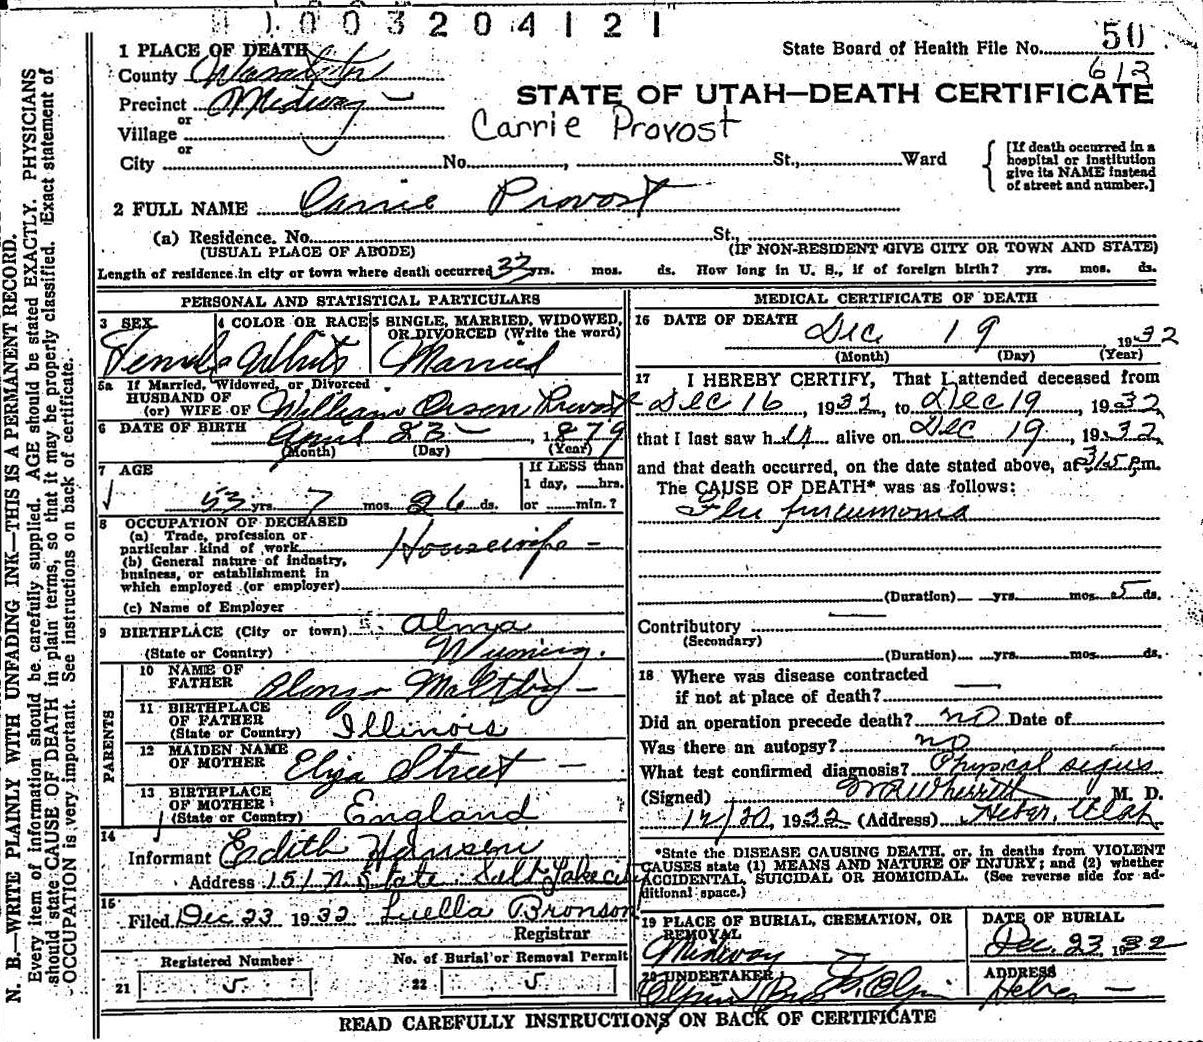 1003204121
State Board of Health File No. 50
613
1 PLACE OF DEATH
County Wasatch
STATE OF UTAH—DEATH CERTIFICATE
Precinct Midway
or
Village
Carrie Provost
or
City No. , St., Ward
[If death occurred in a hospital or institution give its NAME instead of street and number.]
2 FULL NAME Carrie Provost
(a) Residence. No. St.,
(USUAL PLACE OF ABODE) (IF NON-RESIDENT GIVE CITY OR TOWN AND STATE)
Length of residence in city or town where death occurred 33 yrs. mos. ds. How long in U. S., if of foreign birth? yrs. mos. ds.
PERSONAL AND STATISTICAL PARTICULARS
3 SEX 4 COLOR OR RACE 5 SINGLE, MARRIED, WIDOWED, OR DIVORCED (Write the word)
Female White Married
5a If Married, Widowed, or Divorced
HUSBAND OF
(or) WIFE OF William Orson Provost
6 DATE OF BIRTH April 23 , 1879
(Month) (Day) (Year)
7 AGE
If LESS than
1 day, hrs.
53 yrs. 7 mos. 26 ds. or min.?
8 OCCUPATION OF DECEASED
(a) Trade, profession or
particular kind of work Housewife
(b) General nature of industry,
business, or establishment in
which employed (or employer)
(c) Name of Employer
9 BIRTHPLACE (City or town) Alma
(State or Country) Wyoming.
PARENTS
10 NAME OF
FATHER Alonzo Maltby
11 BIRTHPLACE
OF FATHER
(State or Country) Illinois
12 MAIDEN NAME
OF MOTHER Eliza Street
13 BIRTHPLACE
OF MOTHER
(State or Country) England
14
Informant Edith Hansen
Address 151 N. State Salt Lake city
15
Filed Dec 23 1932 Luella Bronson
Registrar
Registered Number No. of Burial or Removal Permit
21 5 22 5
MEDICAL CERTIFICATE OF DEATH
16 DATE OF DEATH Dec 19 , 1932
(Month) (Day) (Year)
17 I HEREBY CERTIFY, That I attended deceased from
Dec 16 , 1932, to Dec 19 , 1932
that I last saw her alive on Dec 19 , 1932
and that death occurred, on the date stated above, at 3:15 p.m.
The CAUSE OF DEATH* was as follows:
Flu pneumonia
(Duration) yrs. mos. 5 ds.
Contributory
(Secondary)
(Duration) yrs. mos. ds.
18 Where was disease contracted
if not at place of death?
Did an operation precede death? no Date of
Was there an autopsy? no
What test confirmed diagnosis? Physical signs
(Signed) Wherritt M. D.
12/20, 1932 (Address) Heber, Utah
*State the DISEASE CAUSING DEATH, or, in deaths from VIOLENT
CAUSES state (1) MEANS AND NATURE OF INJURY; and (2) whether
ACCIDENTAL, SUICIDAL OR HOMICIDAL. (See reverse side for ad-
ditional space.)
19 PLACE OF BURIAL, CREMATION, OR REMOVAL DATE OF BURIAL
Midway Dec. 23, 1932
20 UNDERTAKER ADDRESS
Olpin Bros Heber
READ CAREFULLY INSTRUCTIONS ON BACK OF CERTIFICATE
N. B.—WRITE PLAINLY WITH UNFADING INK—THIS IS A PERMANENT RECORD.
Every item of information should be carefully supplied. AGE should be stated EXACTLY. PHYSICIANS
should state CAUSE OF DEATH in plain terms, so that it may be properly classified. Exact statement of
OCCUPATION is very important. See instructions on back of certificate.